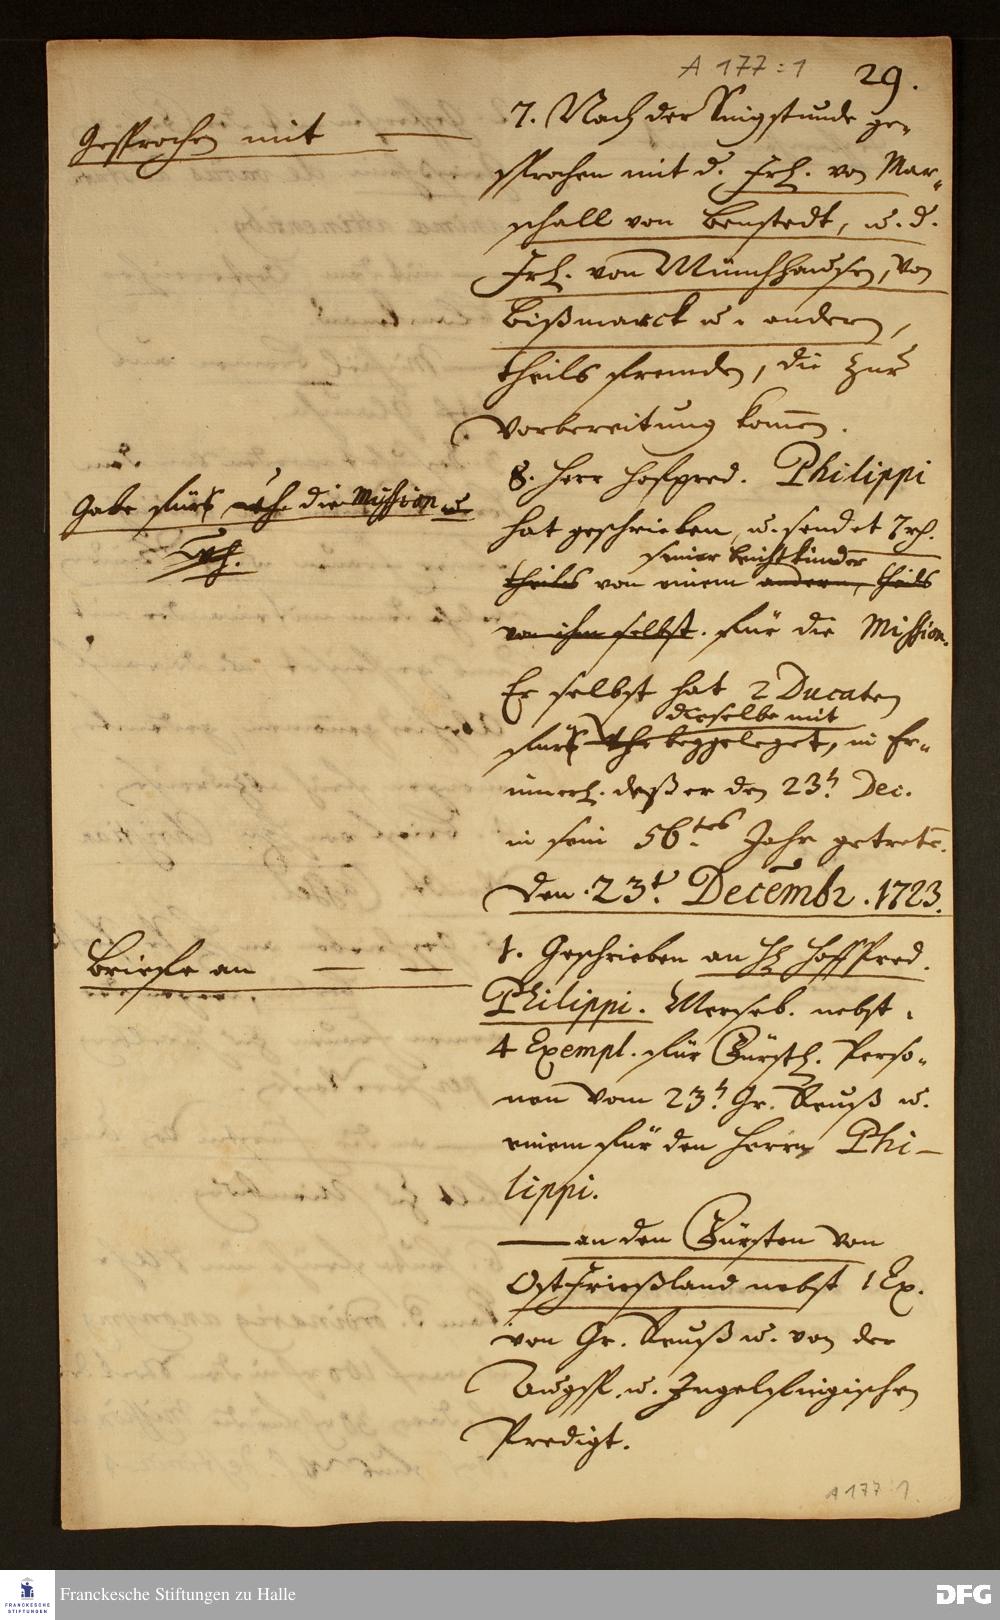 A 177:1
29.
Gesprochen mit —
7. Nach der Singstunde ge-
sprochen mit d. Frh. von Mar-
schall von Benstedt, u. d.
Frh. von Münchhausen, von
Bißmarck u. andern,
theils fremden, die zur
Vorbereitung kommen.
Gabe fürs Wh. die Mission u.
Wh.
8. Herr Hofpred. Philippi
hat geschrieben, u. sendet 7 rh.
seiner Beichtkinder
theils von einem andern, theils
von ihm selbst. für die Mission.
Er selbst hat 2 Ducaten
dieselbe mit
fürs Wh. beygeleget, in Er-
innerh. deß er den 23t. Dec.
in sein 56.tes Jahr getreten.
Den. 23t. Decembr. 1723.
Briefe an — —
1. Geschrieben an H. Hoff Pred.
Philippi. Merseb. nebst
4 Exempl. für Fürstl. Perso-
nen vom 23t. Gr. Reuß u.
einem für den Herrn Phi-
lippi.
— an den Fürsten von
OstFrießland nebst 1 Ex.
von Gr. Reuß u. von der
Augsp. u. Ingelfingischen
Predigt.
A 177:1
FRANCKESCHE
STIFTUNGEN
Franckesche Stiftungen zu Halle
DFG